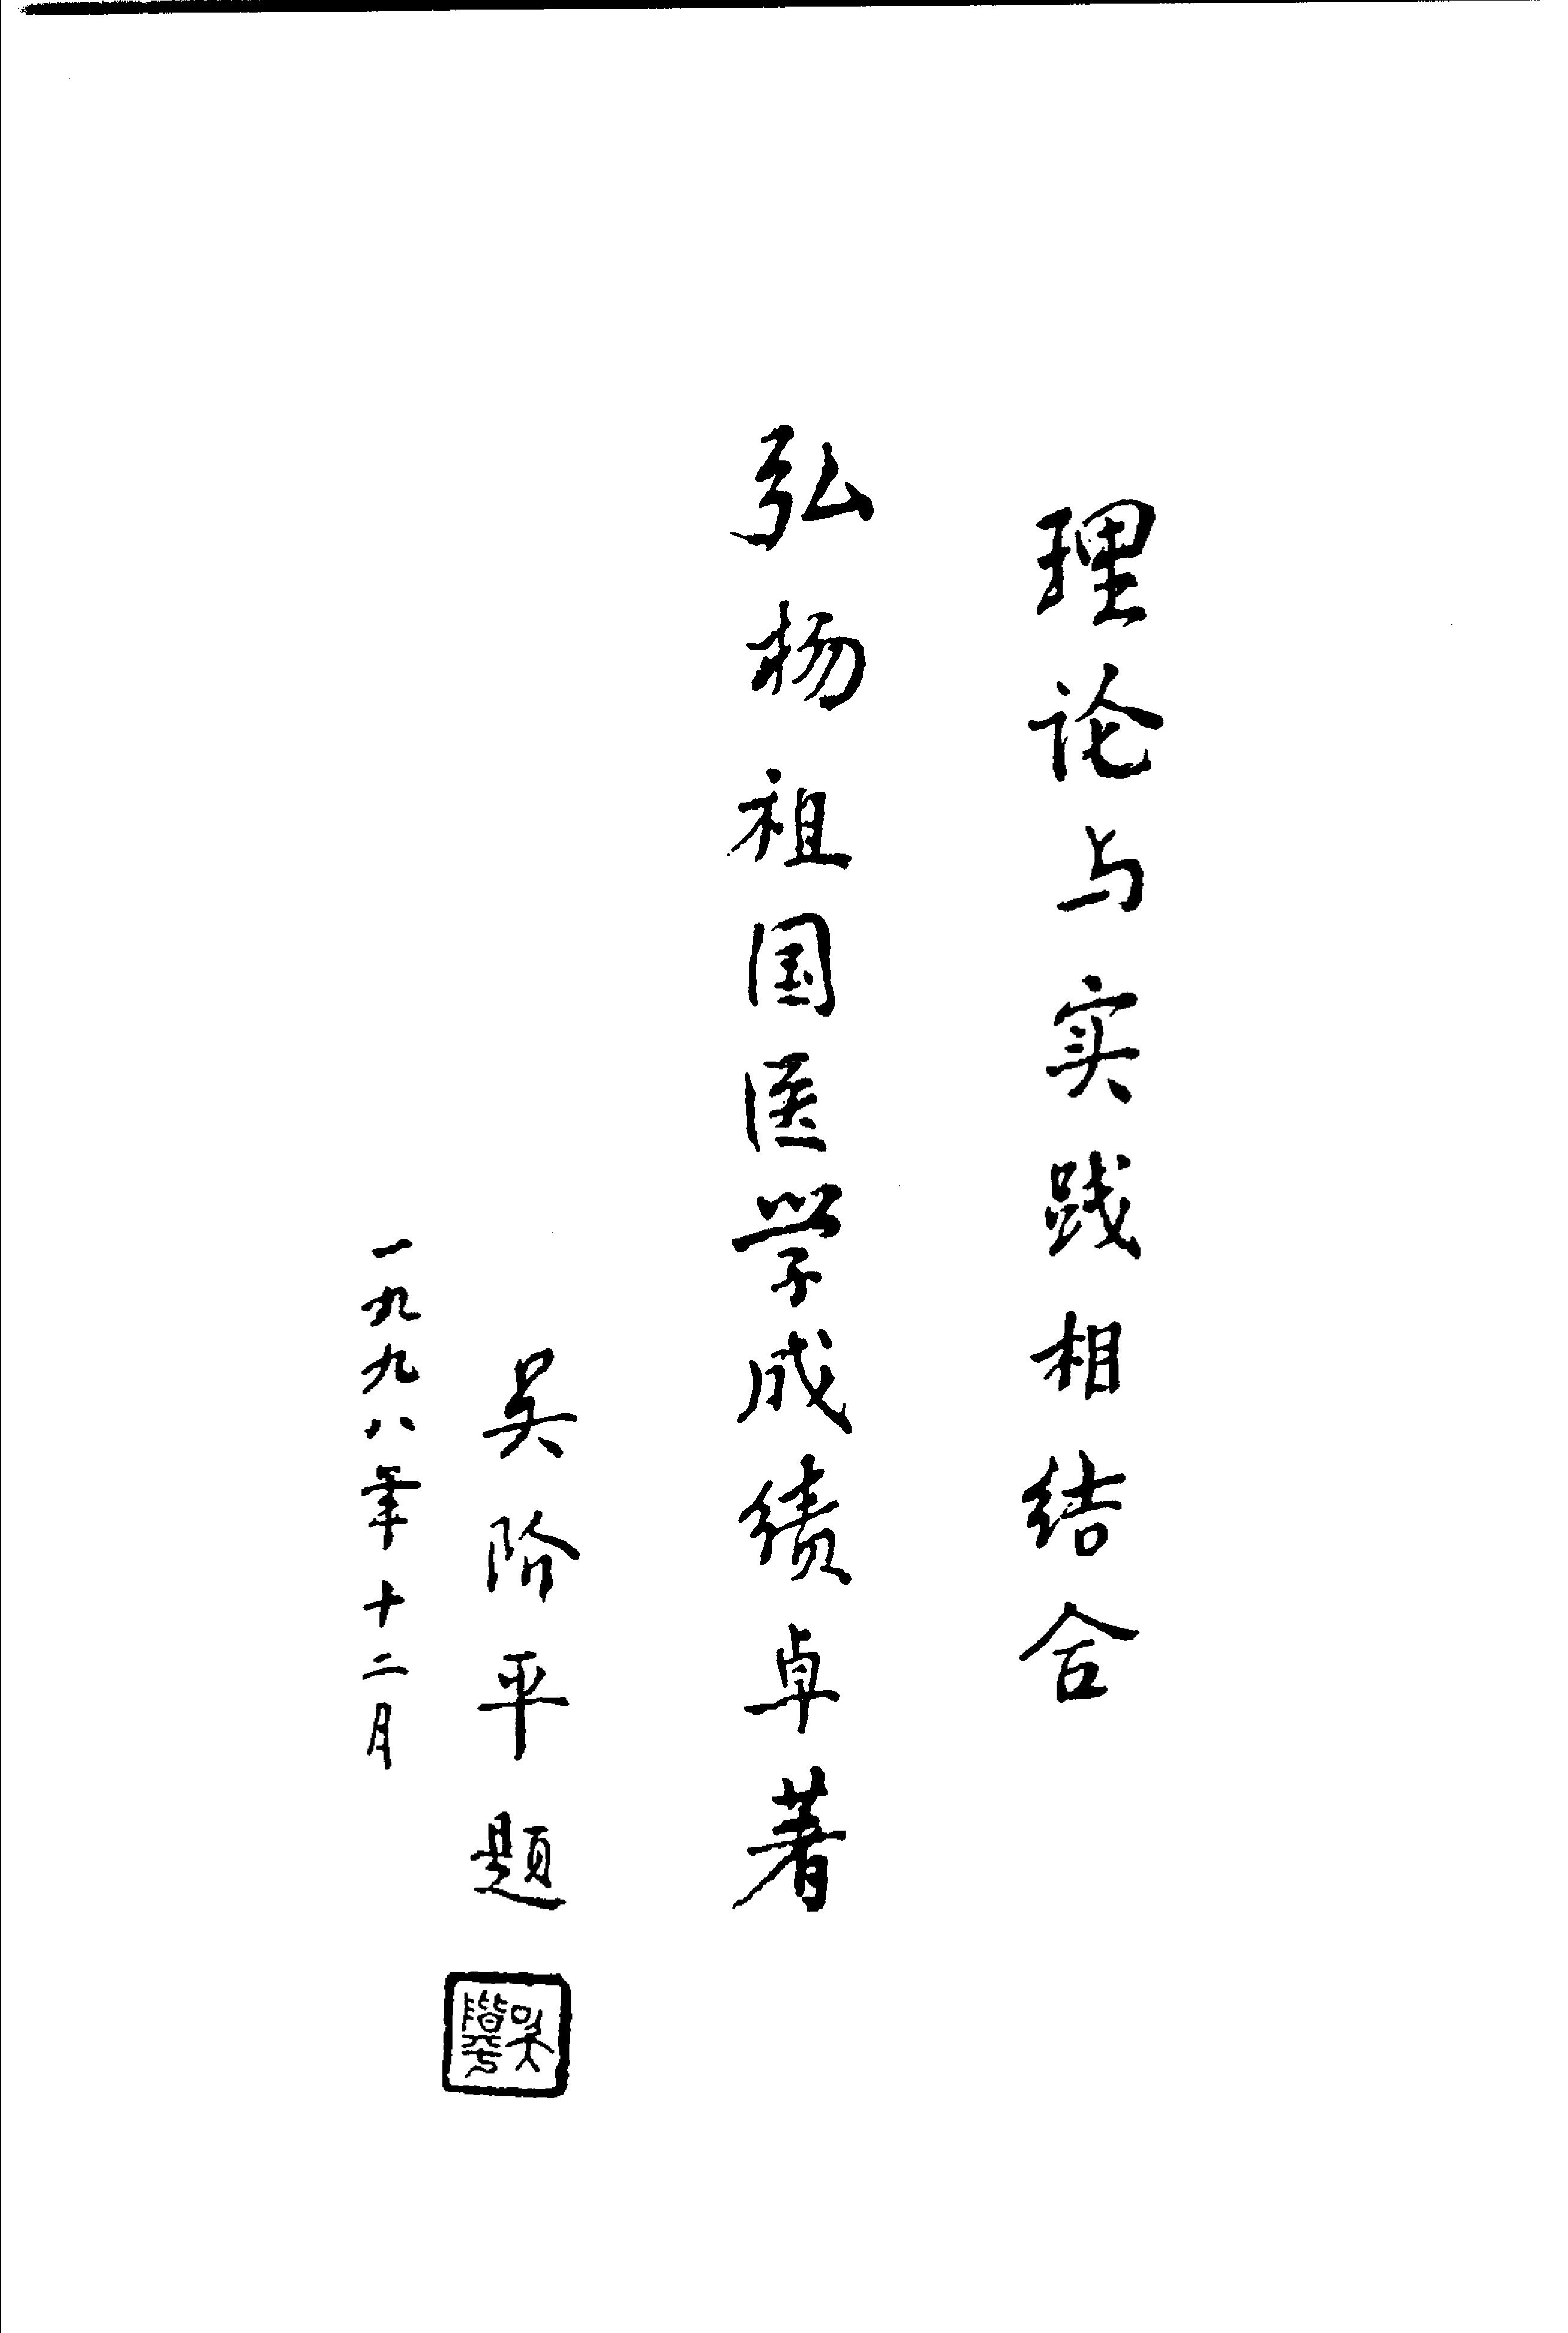 理论与实践相结合
弘杨祖国医学成绩卓著
吴阶平题
一九九八年十二月
吴階平